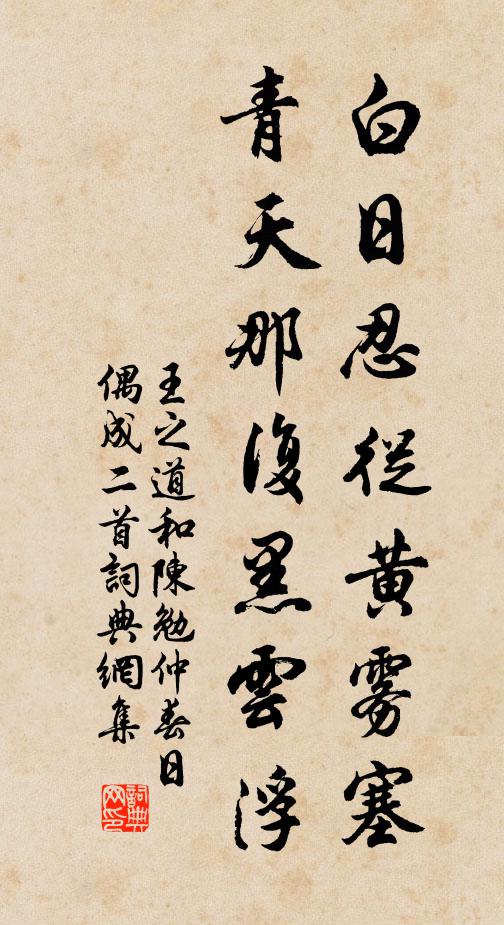 白日忍從黄雾塞
青天那復黑雲浮
王之道和陳勉仲春日
偶成二首詞典網集
詞典网印